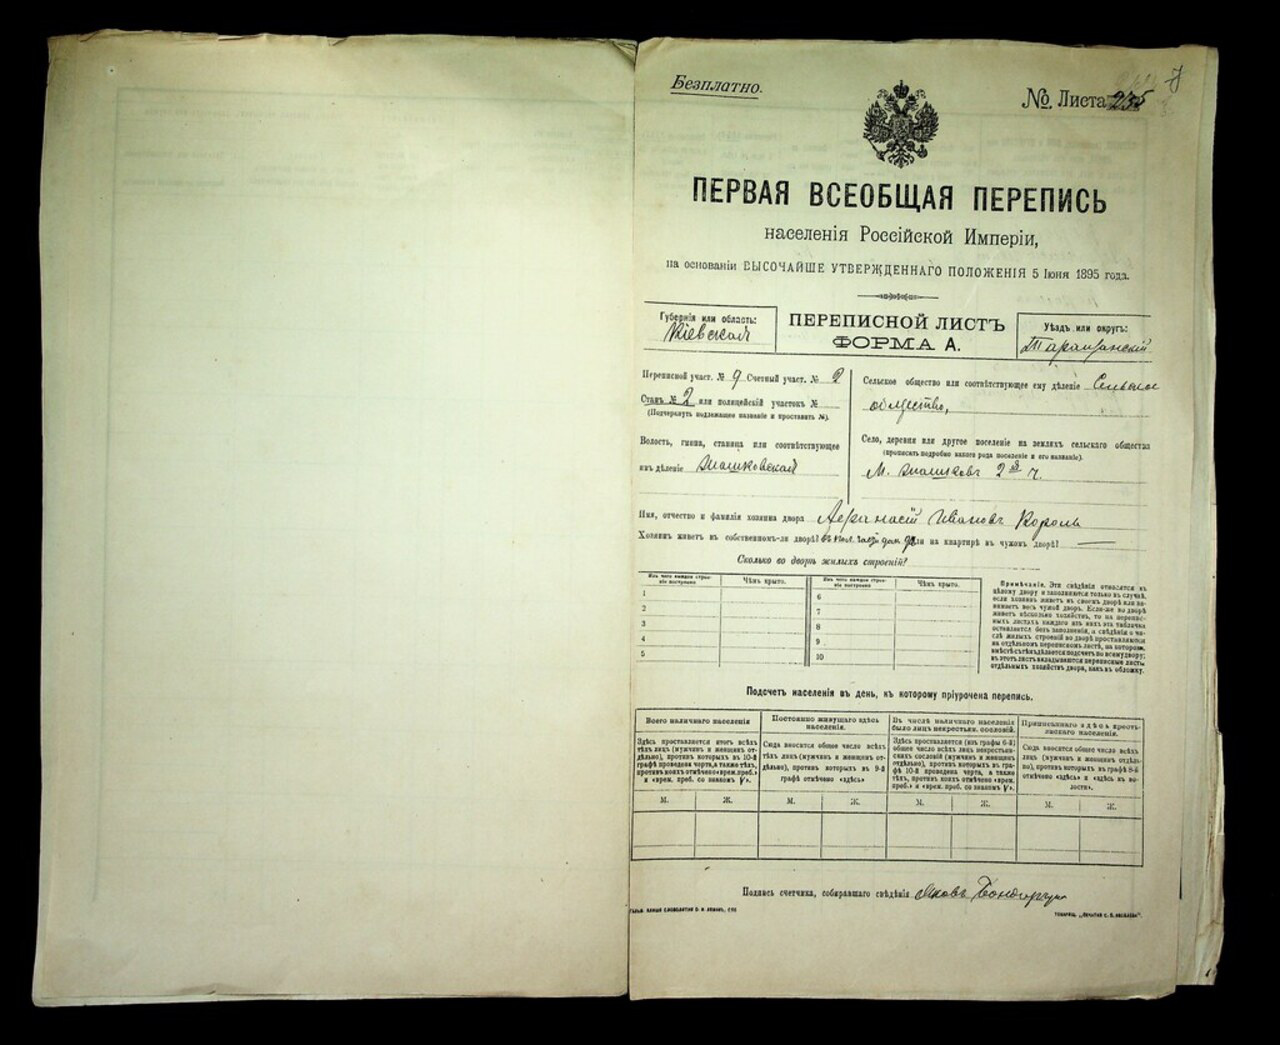 Безплатно.
№ Листа 235
ПЕРВАЯ ВСЕОБЩАЯ ПЕРЕПИСЬ
населенія Россійской Имперіи,
на основаніи ВЫСОЧАЙШЕ УТВЕРЖДЕННАГО ПОЛОЖЕНІЯ 5 Іюня 1895 года.
Губернія или область:
Кіевская
ПЕРЕПИСНОЙ ЛИСТЪ
ФОРМА А.
Уѣздъ или округъ:
Таращанскій
Переписной участ. № 9 Счетный участ. № 2
Станъ № 2 или полицейскій участокъ №
(Подчеркнуть надлежащее названіе и проставить №).
Волость, гмина, станица или соотвѣтствующее
имъ дѣленіе
Сельское общество или соотвѣтствующее ему дѣленіе Сельское
общество,
Село, деревня или другое поселеніе на земляхъ сельскаго общества
(прописать подробно какого рода поселеніе и его названіе).
М. 2 ч.
Имя, отчество и фамилія хозяина двора Афанасій Ивановъ Король
Хозяинъ живетъ въ собственномъ-ли дворѣ? или на квартирѣ въ чужомъ дворѣ? —
Сколько во дворѣ жилыхъ строеній?
Изъ чего каждое строеніе построено Чѣмъ крыто. Изъ чего каждое строеніе построено Чѣмъ крыто.
1 6
2 7
3 8
4 9
5 10
Примѣчаніе. Эти свѣдѣнія относятся къ
цѣлому двору и заполняются только въ случаѣ,
если хозяинъ живетъ въ своемъ дворѣ или занимаетъ
весь чужой дворъ. Если-же во дворѣ
живетъ нѣсколько хозяйствъ, то на переписныхъ
листахъ каждаго изъ нихъ эта табличка
оставляется безъ заполненія, а свѣдѣнія о числѣ
жилыхъ строеній во дворѣ проставляются
на отдѣльномъ переписномъ листѣ, на которомъ
вмѣстѣ съ тѣмъ дѣлается подсчетъ по всему двору;
въ этотъ листъ вкладываются переписные листы
отдѣльныхъ хозяйствъ двора, какъ въ обложку.
Подсчетъ населенія въ день, къ которому пріурочена перепись.
Всего наличнаго населенія
Здѣсь проставляется итогъ всѣхъ
тѣхъ лицъ (мужчинъ и женщинъ отдѣльно),
противъ которыхъ въ 10-й
графѣ проведена черта, а также тѣхъ,
противъ коихъ отмѣчено «врем. преб.»
и «врем. преб. со знакомъ V».
М. Ж.
Постоянно живущаго здѣсь
населенія.
Сюда вносится общее число всѣхъ
тѣхъ лицъ (мужчинъ и женщинъ отдѣльно),
противъ которыхъ въ 9-й
графѣ отмѣчено «здѣсь»
М. Ж.
Въ числѣ наличнаго населенія
было лицъ некрестьян. сословій.
Здѣсь проставляется (изъ графы 6-й)
общее число всѣхъ лицъ некрестьянскихъ
сословій (мужчинъ и женщинъ
отдѣльно), противъ которыхъ въ графѣ
10-й проведена черта, а также
тѣхъ, противъ коихъ отмѣчено «врем.
преб.» и «врем. преб. со знакомъ V».
М. Ж.
Приписаннаго здѣсь крестьянскаго
населенія.
Сюда вносится общее число всѣхъ
лицъ (мужчинъ и женщинъ отдѣльно),
противъ которыхъ въ графѣ 8-й
отмѣчено «здѣсь» и «здѣсь въ волости».
М. Ж.
Подпись счетчика, собиравшаго свѣдѣнія Яковъ